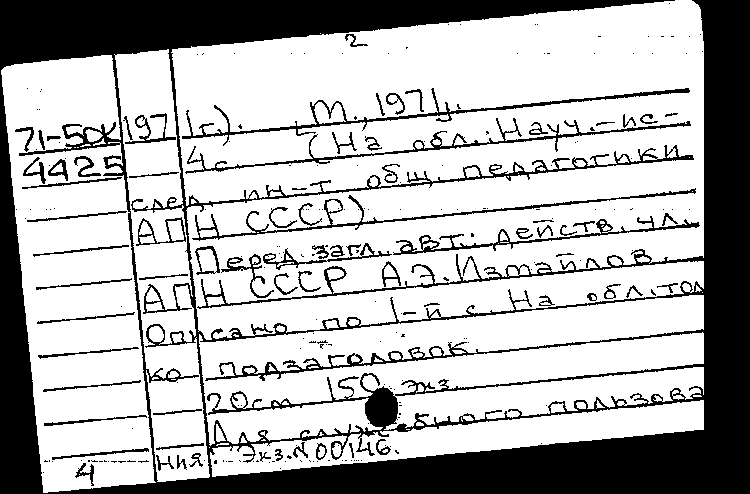 2
71-5ДК 1971г.). [М., 1971].
4425 4с. (На обл.: Науч.-ис-
след. ин-т общ. педагогики
АПН СССР).
Перед загл. авт.: действ. чл.
АПН СССР А.Э.Измайлов.
Описано по 1-й с. На обл. толь
ко подзаголовок.
20см. 150 экз.
Для служебного пользова
ния. Экз.N 00146.
4